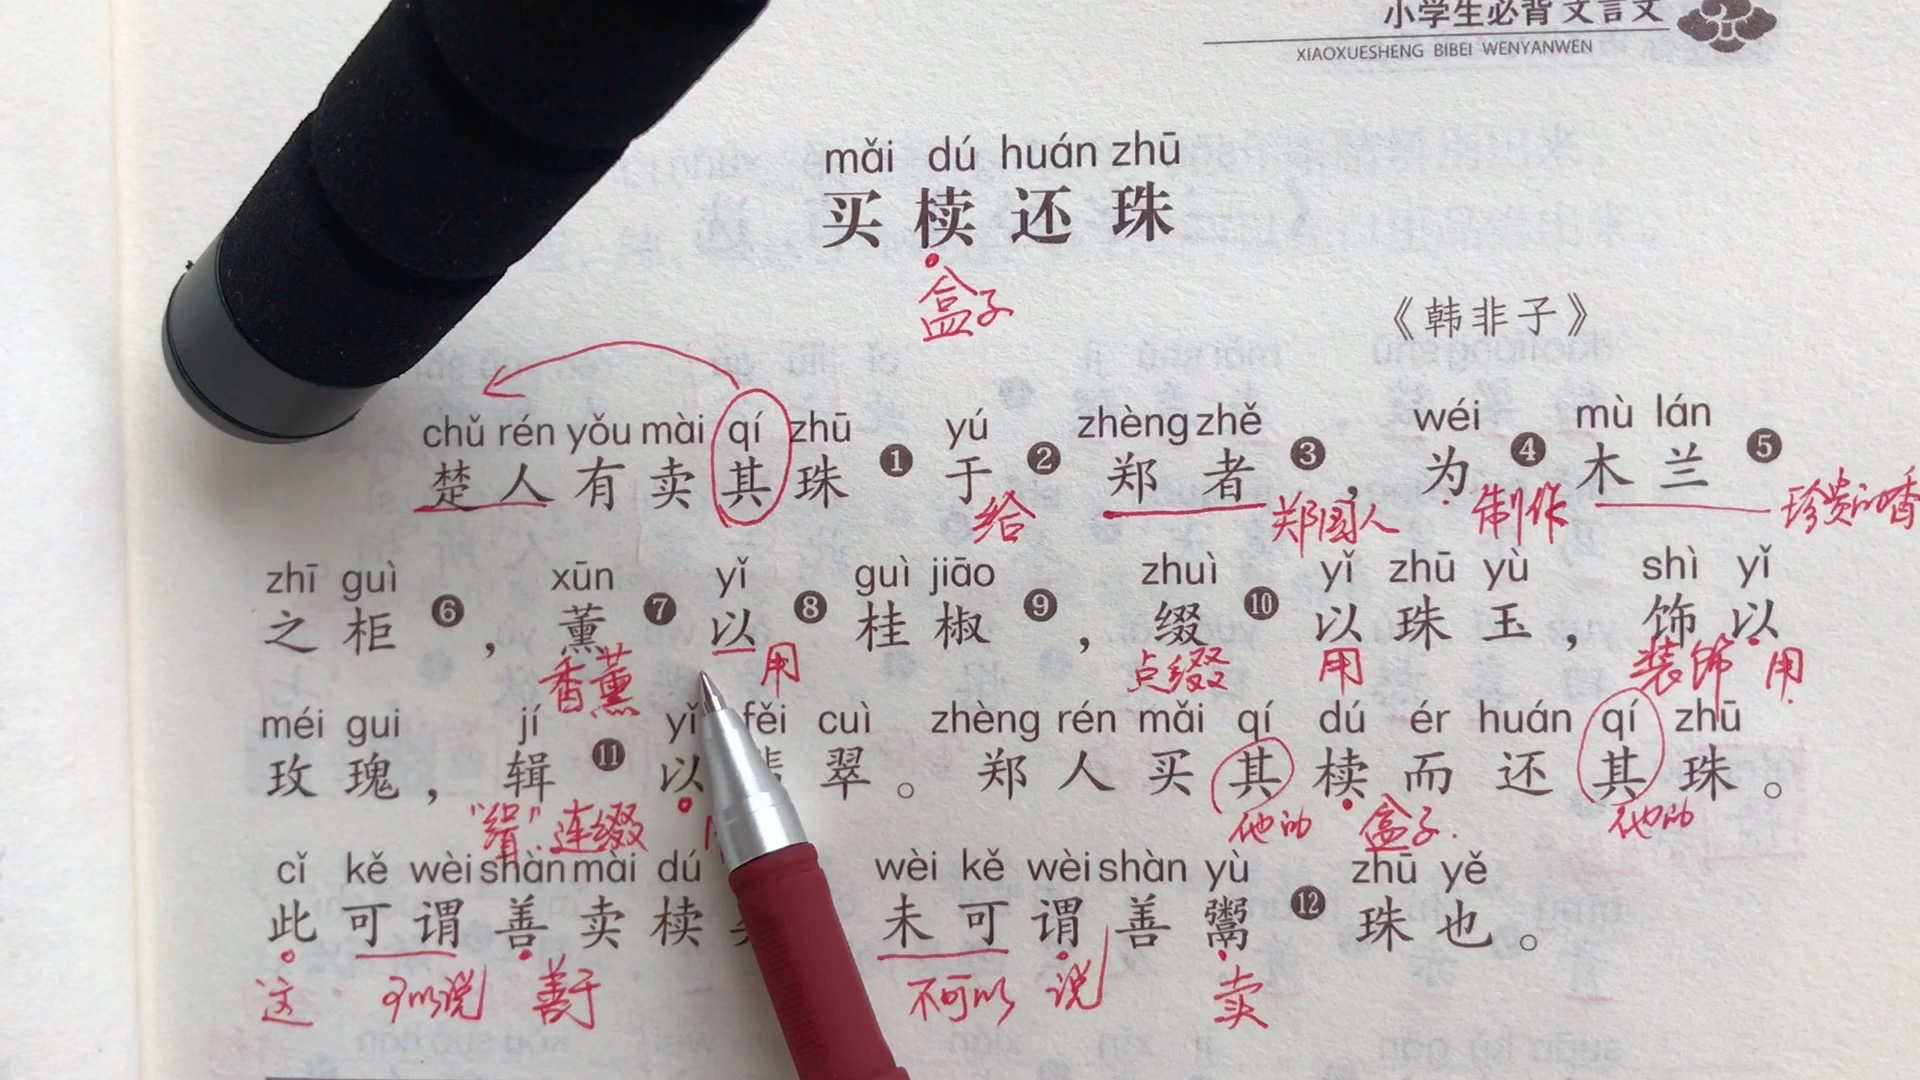 小学生必背文言文
XIAOXUESHENG BIBEI WENYANWEN
mǎi dú huán zhū
买椟还珠
盒子
《韩非子》
chǔ rén yǒu mài qí zhū yú zhèng zhě wéi mù lán
楚人有卖其珠❶于❷郑者❸，为❹木兰❺
给 郑国人 制作 珍贵的香
zhī guì xūn yǐ guì jiāo zhuì yǐ zhū yù shì yǐ
之柜❻，薰❼以❽桂椒❾，缀❿以珠玉，饰以
香薰 用 点缀 用 装饰 用
méi gui jí yǐ fěi cuì zhèng rén mǎi qí dú ér huán qí zhū
玫瑰，辑⓫以翡翠。郑人买其椟而还其珠。
"缉" 连缀 他的 盒子 他的
cǐ kě wèi shàn mài dú wèi kě wèi shàn yù zhū yě
此可谓善卖椟 未可谓善鬻⓬珠也。
这 可以说 善于 不可以 说 卖